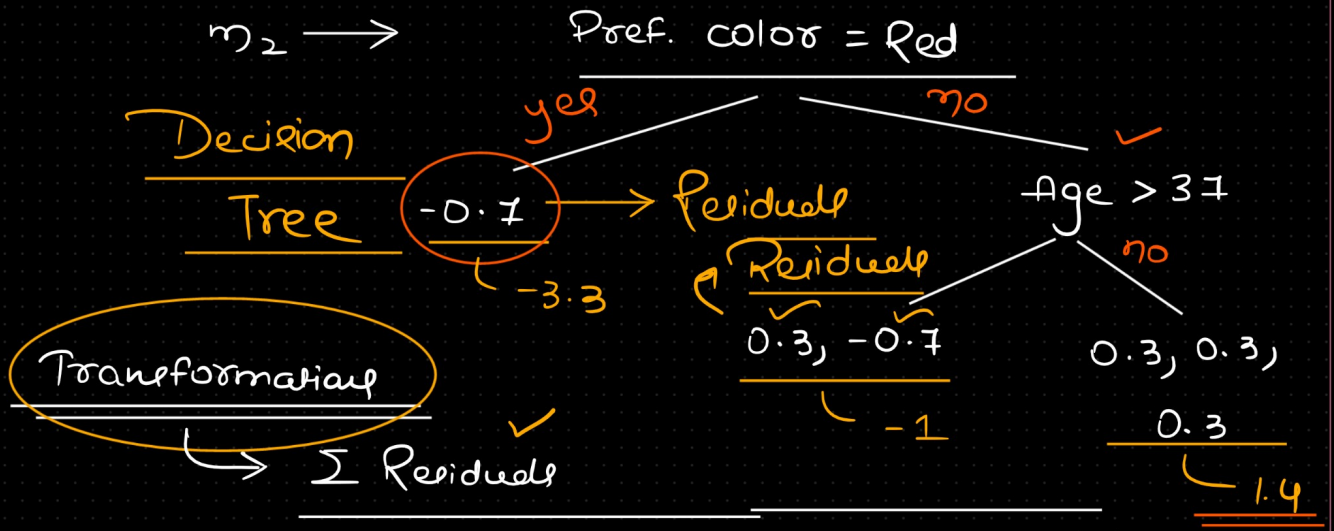 m2 → Pref. color = Red
yes
no
Decision
Tree
-0.7 → Residuals
Age > 37
no
Residuals
-3.3
0.3, -0.7
0.3, 0.3,
0.3
-1
1.4
Transformations
Σ Residuals